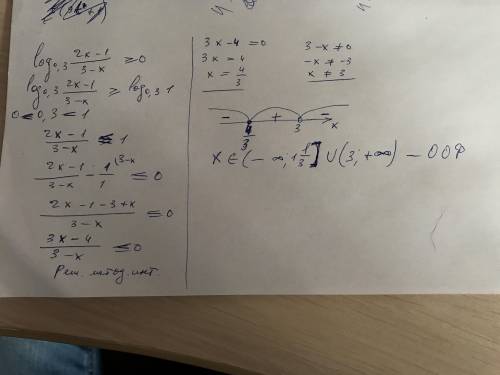 log₀,₃ (2x-1)/(3-x) ≥ 0
log₀,₃ (2x-1)/(3-x) ≥ log₀,₃ 1
0 < 0,3 < 1
(2x-1)/(3-x) ≤ 1
(2x-1)/(3-x) - 1/1 ^(3-x) ≤ 0
(2x-1-3+x)/(3-x) ≤ 0
(3x-4)/(3-x) ≤ 0
Реш. метод. инт.
3x-4=0
3x=4
x=4/3
3-x≠0
-x≠-3
x≠3
- + -
4/3 3 x
x∈(-∞; 1 1/3] ∪ (3; +∞) - ООФ